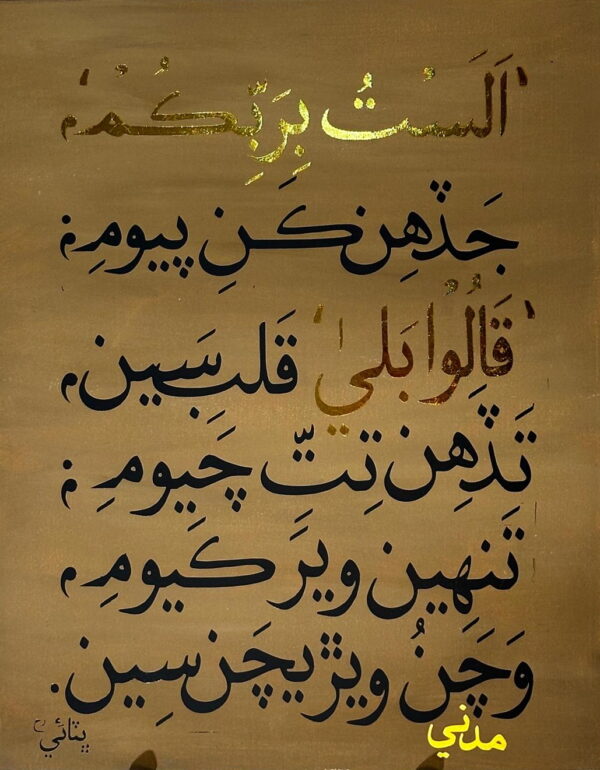 'اَلَسْتُ بِرَبِّکُمْ'،
جَڏهِن کَنِ پييومِ؛
'قَالُوا بَليٰ' قَلبِ سَين،
تَڏهِن تِتّ چَيومِ؛
تَنهِين ويرَ کَيومِ،
وَچَنُ ويڙيچَن سِين.
ڀٽائيؒ
مدني